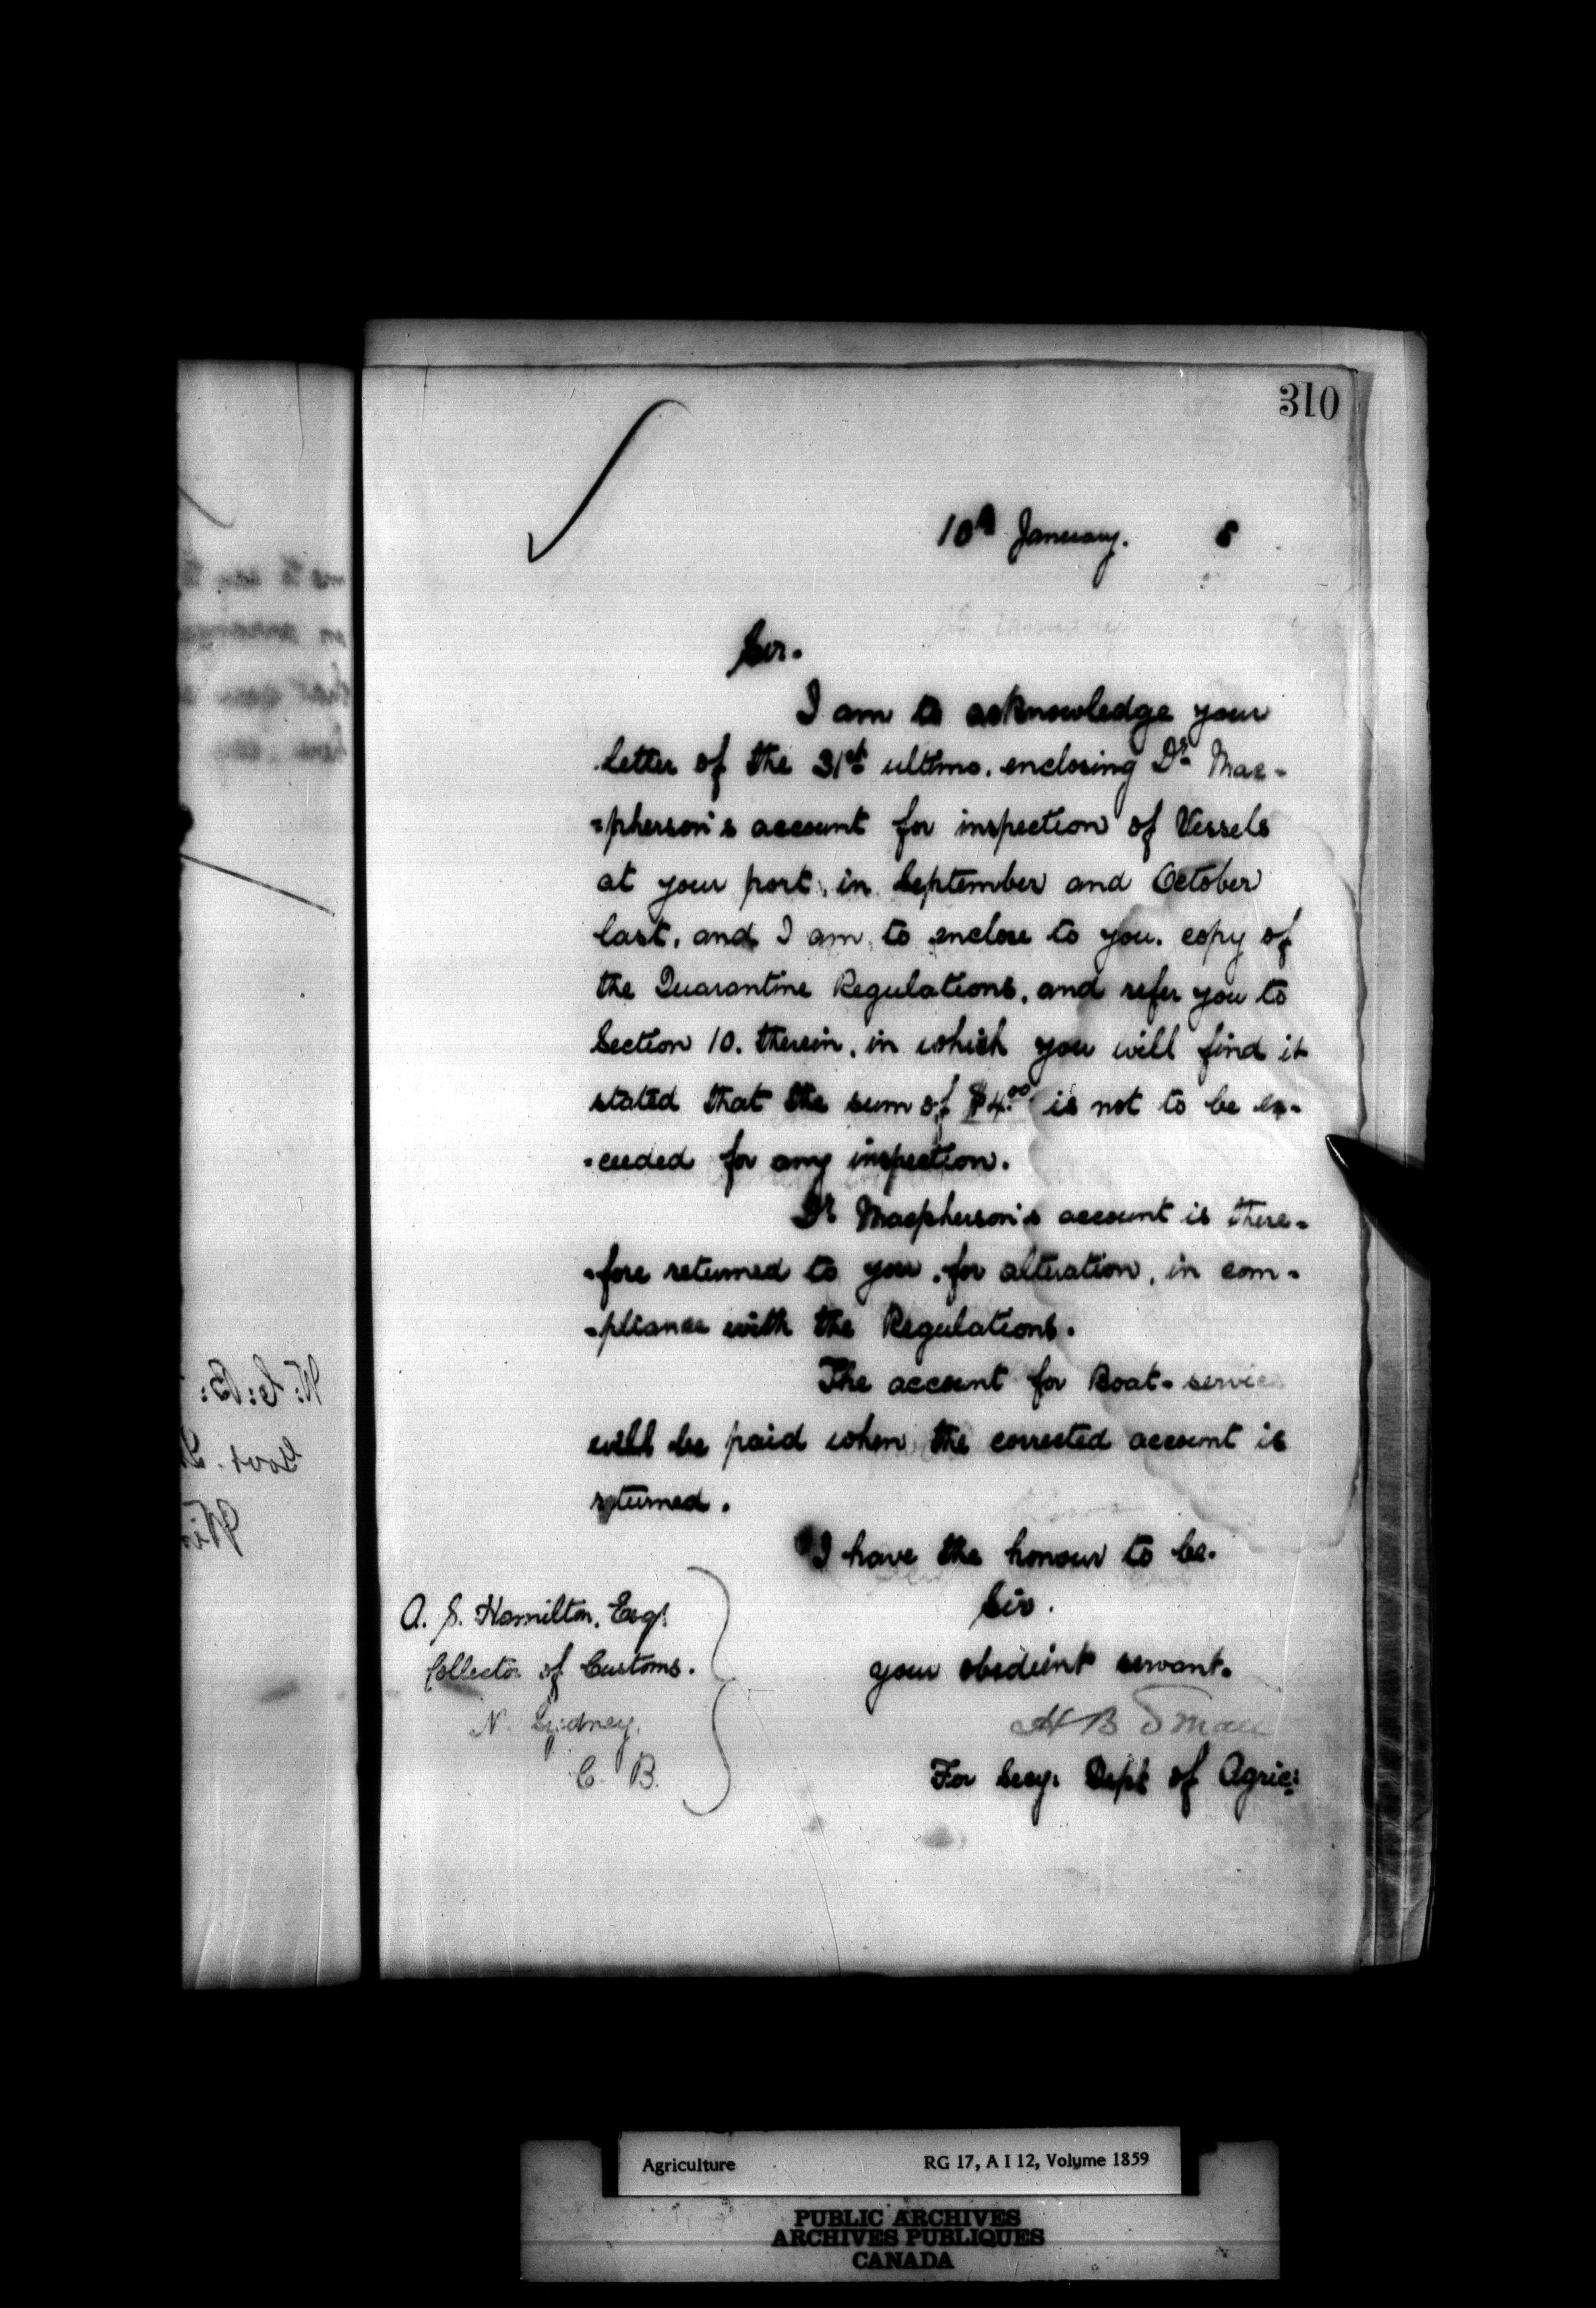 310
10th January. 8
Sir.
I am to acknowledge your
letter of the 31st ultimo, enclosing Dr Mac-
-pherson's account for inspection of Vessels
at your port, in September and October
last, and I am, to enclose to you, copy of
the Quarantine Regulations, and refer you to
Section 10. therein, in which you will find it
stated that the sum of $4.00 is not to be ex-
-ceeded for any inspection.
Dr Macpherson's account is there-
-fore returned to you, for alteration, in com-
-pliance with the Regulations.
The account for Boat-service
will be paid when the corrected account is
returned.
I have the honour to be.
Sir.
your obedient servant.
H B Small
For Secy: Dept of Agric:
A. S. Hamilton, Esqr.
Collector of Customs.
N. Sydney,
C. B.
Agriculture RG 17, A I 12, Volume 1859
PUBLIC ARCHIVES
ARCHIVES PUBLIQUES
CANADA